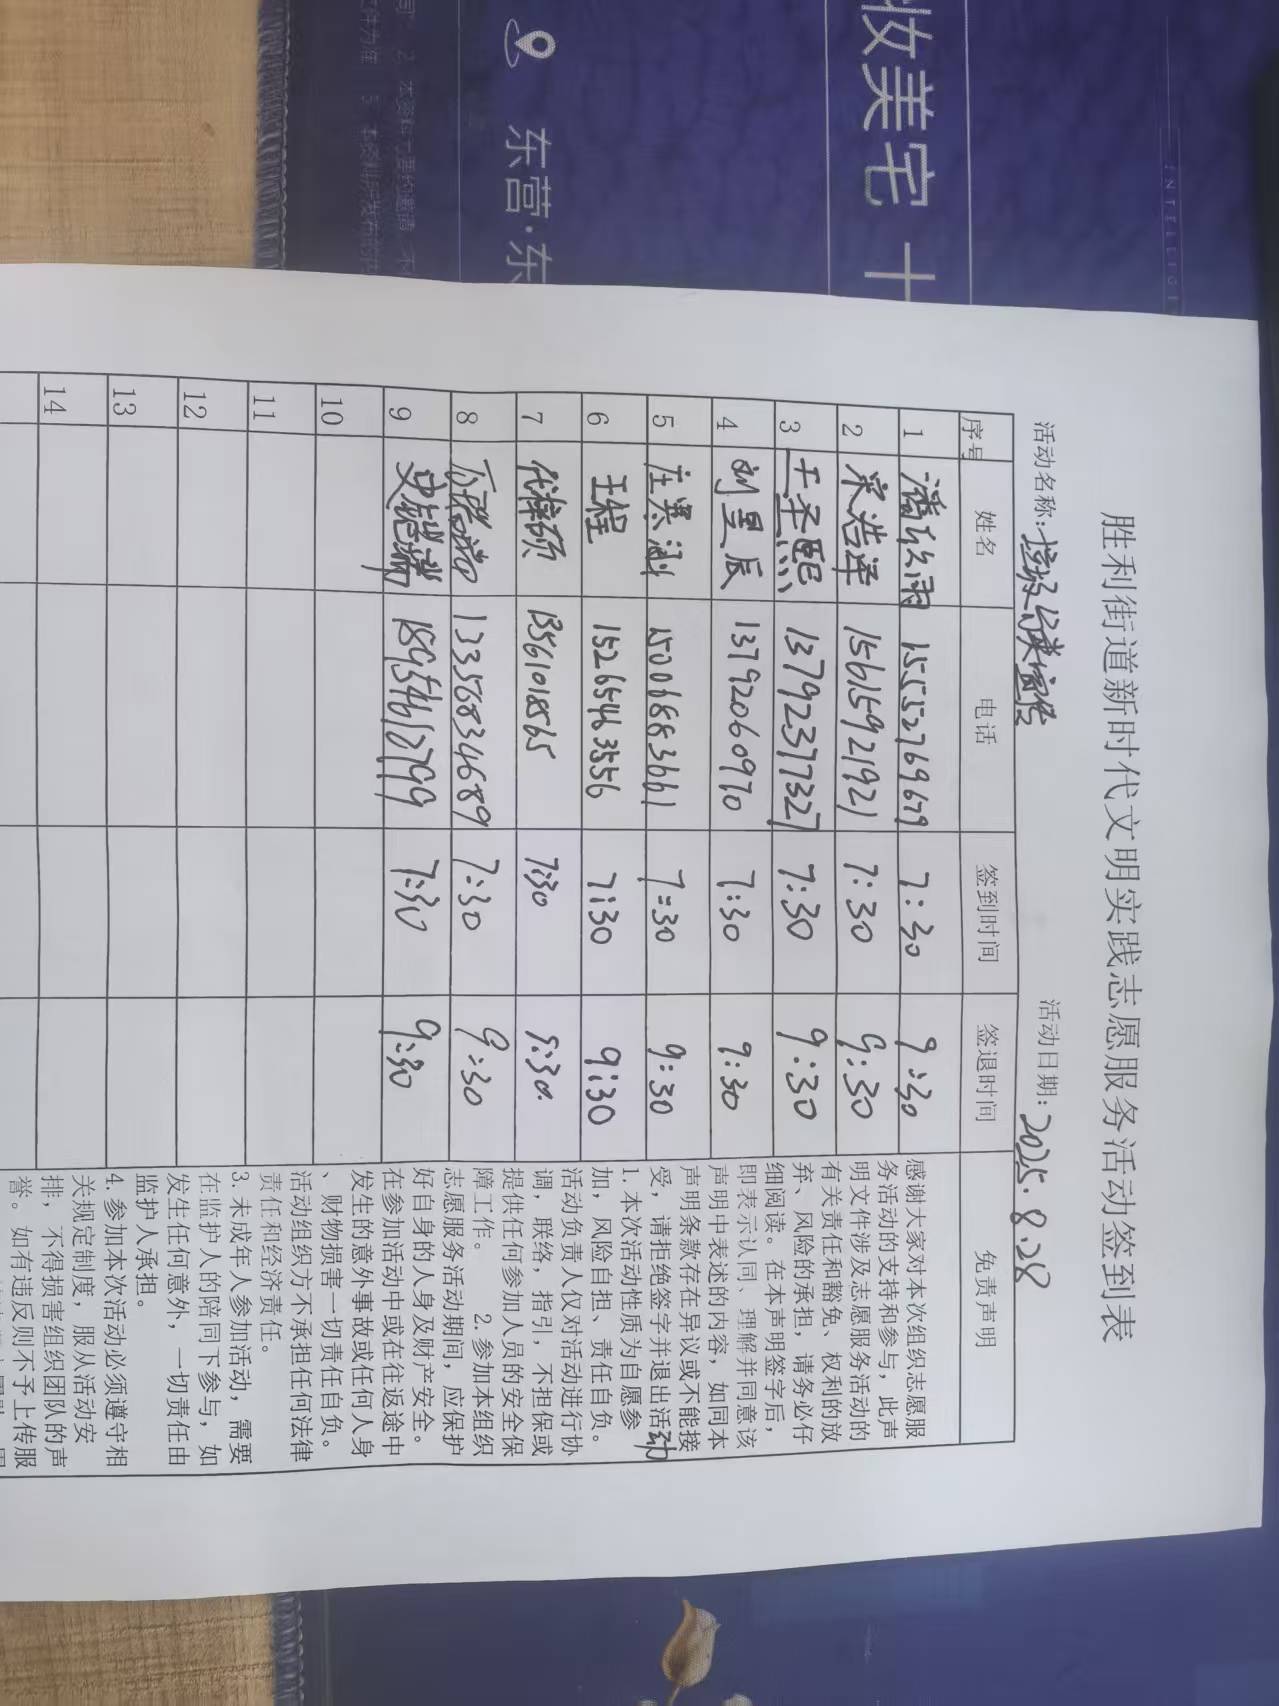 妆美宅 十
INTELLIGE
东营·东
胜利街道新时代文明实践志愿服务活动签到表
活动名称:垃圾分类宣传 活动日期:2025.8.28
序号 姓名 电话 签到时间 签退时间 免责声明
1 15552769679 7:30 9:30
2 宋浩泽 15615921921 7:30 9:30
3 王圣熙 13792377327 7:30 9:30
4 刘昱辰 13792060970 7:30 9:30
5 庄寒涵 15006883661 7=30 9:30
6 王程 15265463556 7:30 9:30
7 代梓硕 13561018565 7:30 9:30
8 13356834689 7:30 9:30
9 18954612799 7:30 9:30
10
11
12
13
14
感谢大家对本次组织志愿服
务活动的支持和参与,此声
明文件涉及志愿服务活动的
有关责任和豁免、权利的放
弃、风险的承担,请务必仔
细阅读。在本声明签字后,
即表示认同、理解并同意该
声明中表述的内容,如同本
声明条款存在异议或不能接
受,请拒绝签字并退出活动
1.本次活动性质为自愿参
加,风险自担、责任自负。
活动负责人仅对活动进行协
调,联络,指引,不担保或
提供任何参加人员的安全保
障工作。 2.参加本组织
志愿服务活动期间,应保护
好自身的人身及财产安全。
在参加活动中或在往返途中
发生的意外事故或任何人身
、财物损害一切责任自负。
活动组织方不承担任何法律
责任和经济责任。
3.未成年人参加活动,需要
在监护人的陪同下参与,如
发生任何意外,一切责任由
监护人承担。
4.参加本次活动必须遵守相
关规定制度,服从活动安
排,不得损害组织团队的声
誉。如有违反则不予上传服